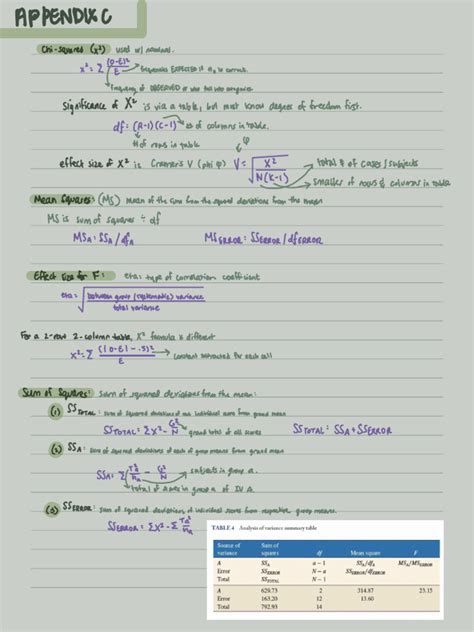 APPENDIX C
Chi-squared (x²) used w/ nominal.
x² = Σ (O-E)² / E → frequencies EXPECTED if H₀ is correct.
frequency of OBSERVED
Significance of X² is via a table, but must know degrees of freedom first.
df: (R-1)(C-1) → # of columns in table.
# of rows in table
effect size of X² is Cramer's V (phi φ) V = √ X² / N(K-1) → total # of cases/subjects
smaller of rows & columns in table
φ
Mean Squares: (MS) mean of the sum from the squared deviations from the mean
MS is sum of squares ÷ df
MS_A: SS_A / df_A MS_ERROR: SS_ERROR / df_ERROR
Effect Size for F: eta: type of correlation coefficient
eta = √ between group (systematic) variance / total variance
For a 2-row 2-column table, X² formula is different
X² = Σ (|O-E| - .5)² / E → constant subtracted for each cell
Sum of Squares: sum of squared deviations from the mean:
(1) SS_TOTAL: sum of squared deviations of each individual score from grand mean
SS_TOTAL = ΣX² - G²/N → grand total of all scores SS_TOTAL: SS_A + SS_ERROR
(2) SS_A: sum of squared deviations of each of group means from grand mean
SS_A: Σ T_a²/n_a - G²/N subjects in group a.
total of scores in group a of IV A.
(3) SS_ERROR: sum of squared deviations of individual scores from respective group means.
SS_ERROR = ΣX² - Σ T_a²/n_a
TABLE 4 Analysis of variance summary table
Source of variance Sum of squares df Mean square F
A SS_A a − 1 SS_A/df_A MS_A/MS_ERROR
Error SS_ERROR N − a SS_ERROR/df_ERROR
Total SS_TOTAL N − 1
A 629.73 2 314.87 23.15
Error 163.20 12 13.60
Total 792.93 14